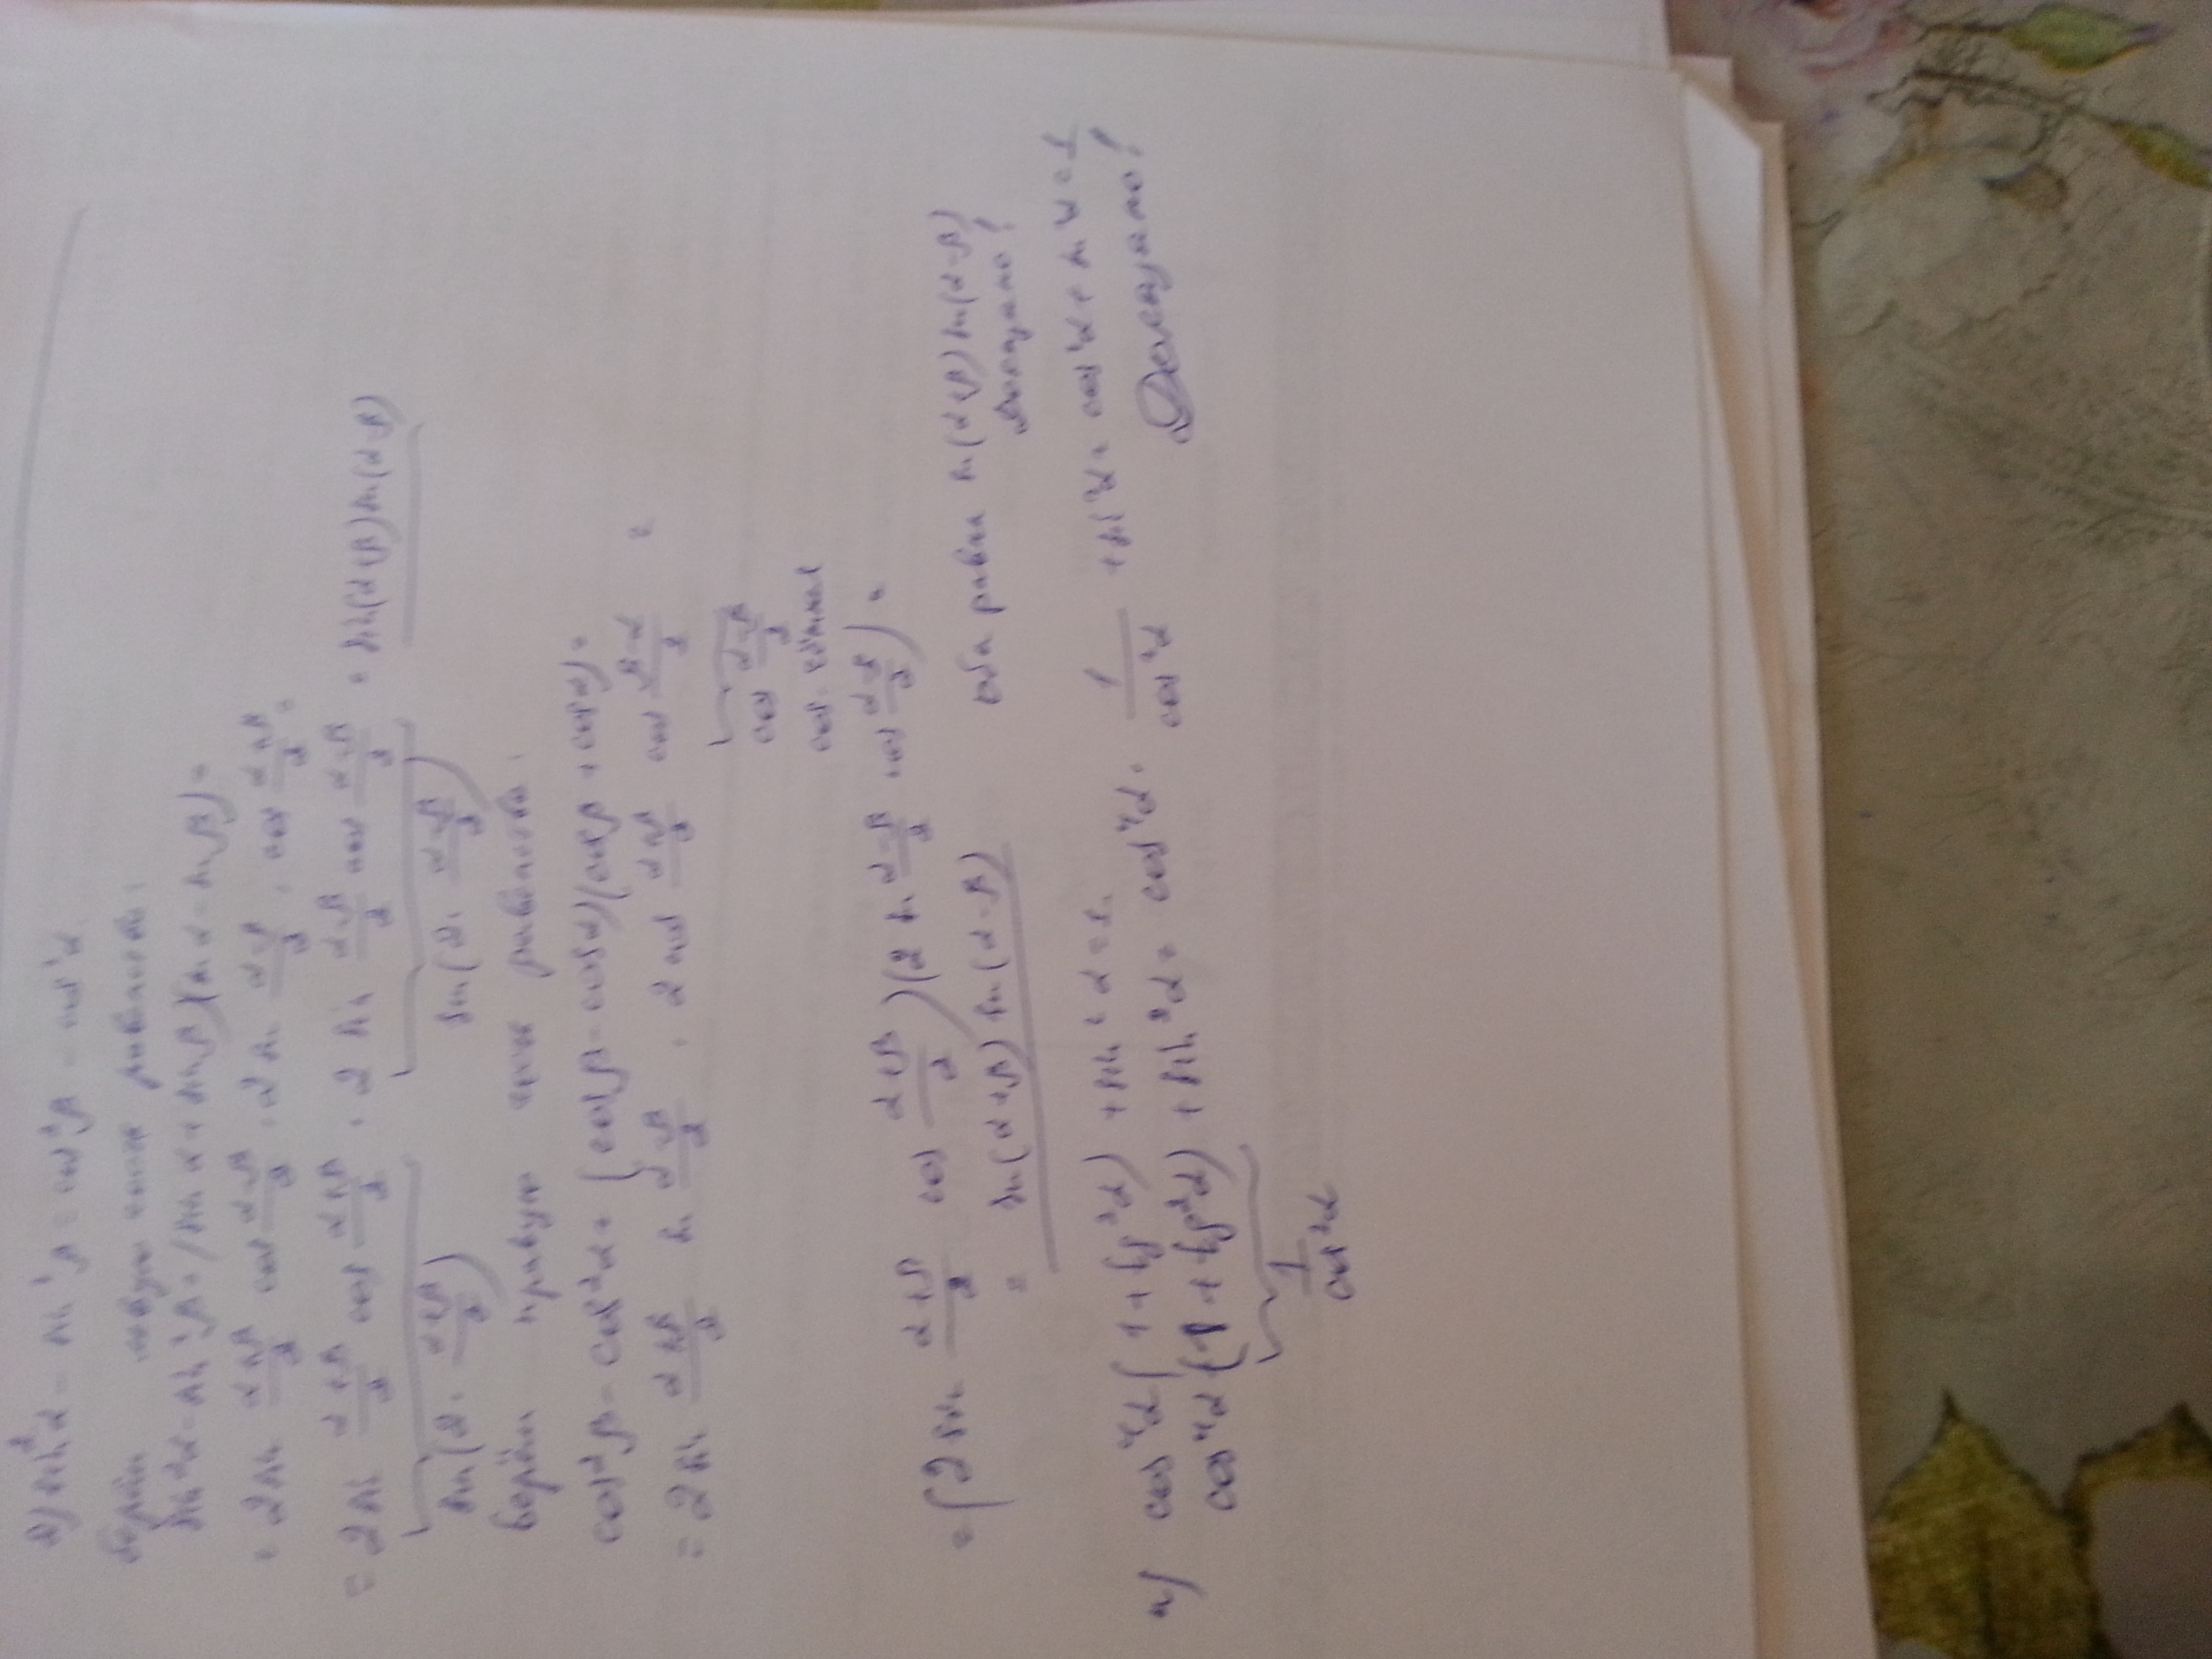 2) sin²α - sin²β = cos²β - cos²α
берём левую часть равенства:
sin²α - sin²β = (sin α + sin β)(sin α - sin β) =
= 2 sin (α+β)/2 cos (α-β)/2 · 2 sin (α-β)/2 · cos (α+β)/2 =
= 2 sin (α+β)/2 cos (α+β)/2 · 2 sin (α-β)/2 cos (α-β)/2 = sin(α+β) sin(α-β)
sin(2 · (α+β)/2) sin(2 · (α-β)/2)
берём правую часть равенства:
cos²β - cos²α = (cos β - cos α)(cos β + cos α) =
= 2 sin (α+β)/2 sin (α-β)/2 · 2 cos (α+β)/2 cos (β-α)/2 =
cos (α-β)/2
cos
= (2 sin (α+β)/2 cos (α+β)/2)(2 sin (α-β)/2 cos (α-β)/2) =
= sin(α+β) sin(α-β) оба равны sin(α+β) sin(α-β)
Доказано!
4) cos⁴α(1 + tg²α) + sin²α = 1.
cos⁴α(1 + tg²α) + sin²α = cos⁴α · 1/cos²α + sin²α = cos²α + sin²α = 1
1/cos²α Доказано!